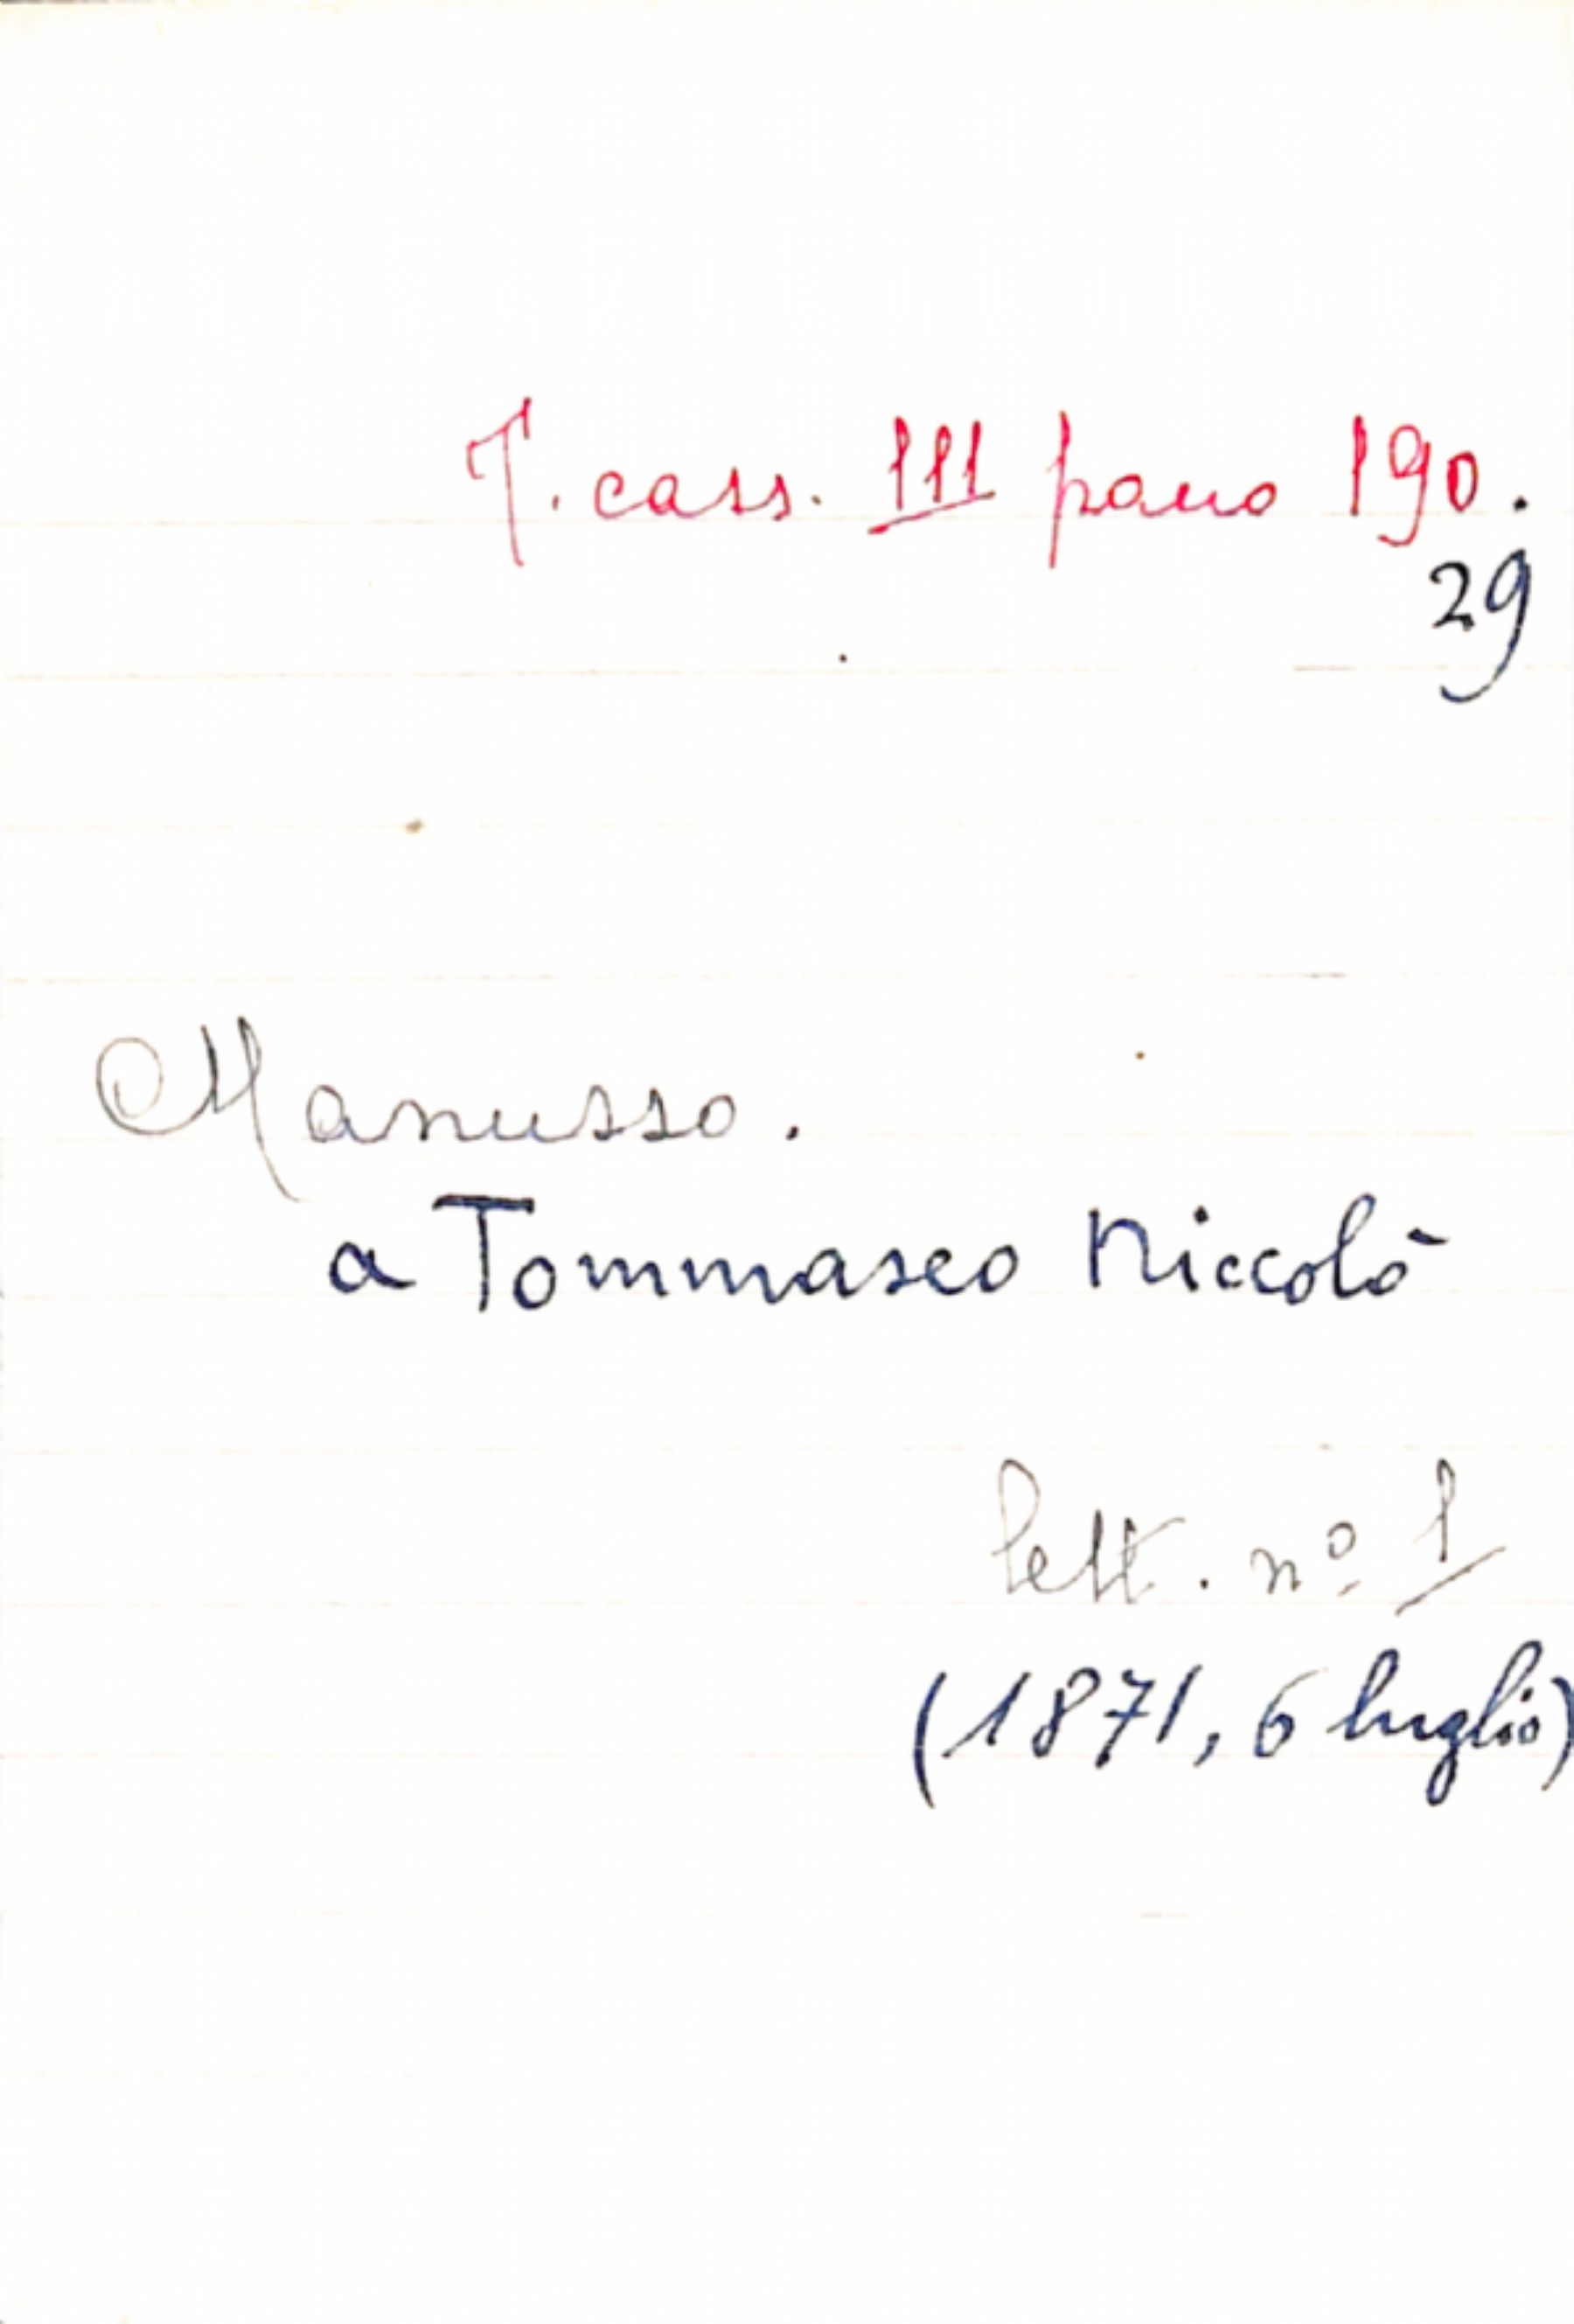 T. cass. III pano 190.
29
Manusso.
a Tommaseo Niccolò
lett. nº 1
(1871, 6 luglio)